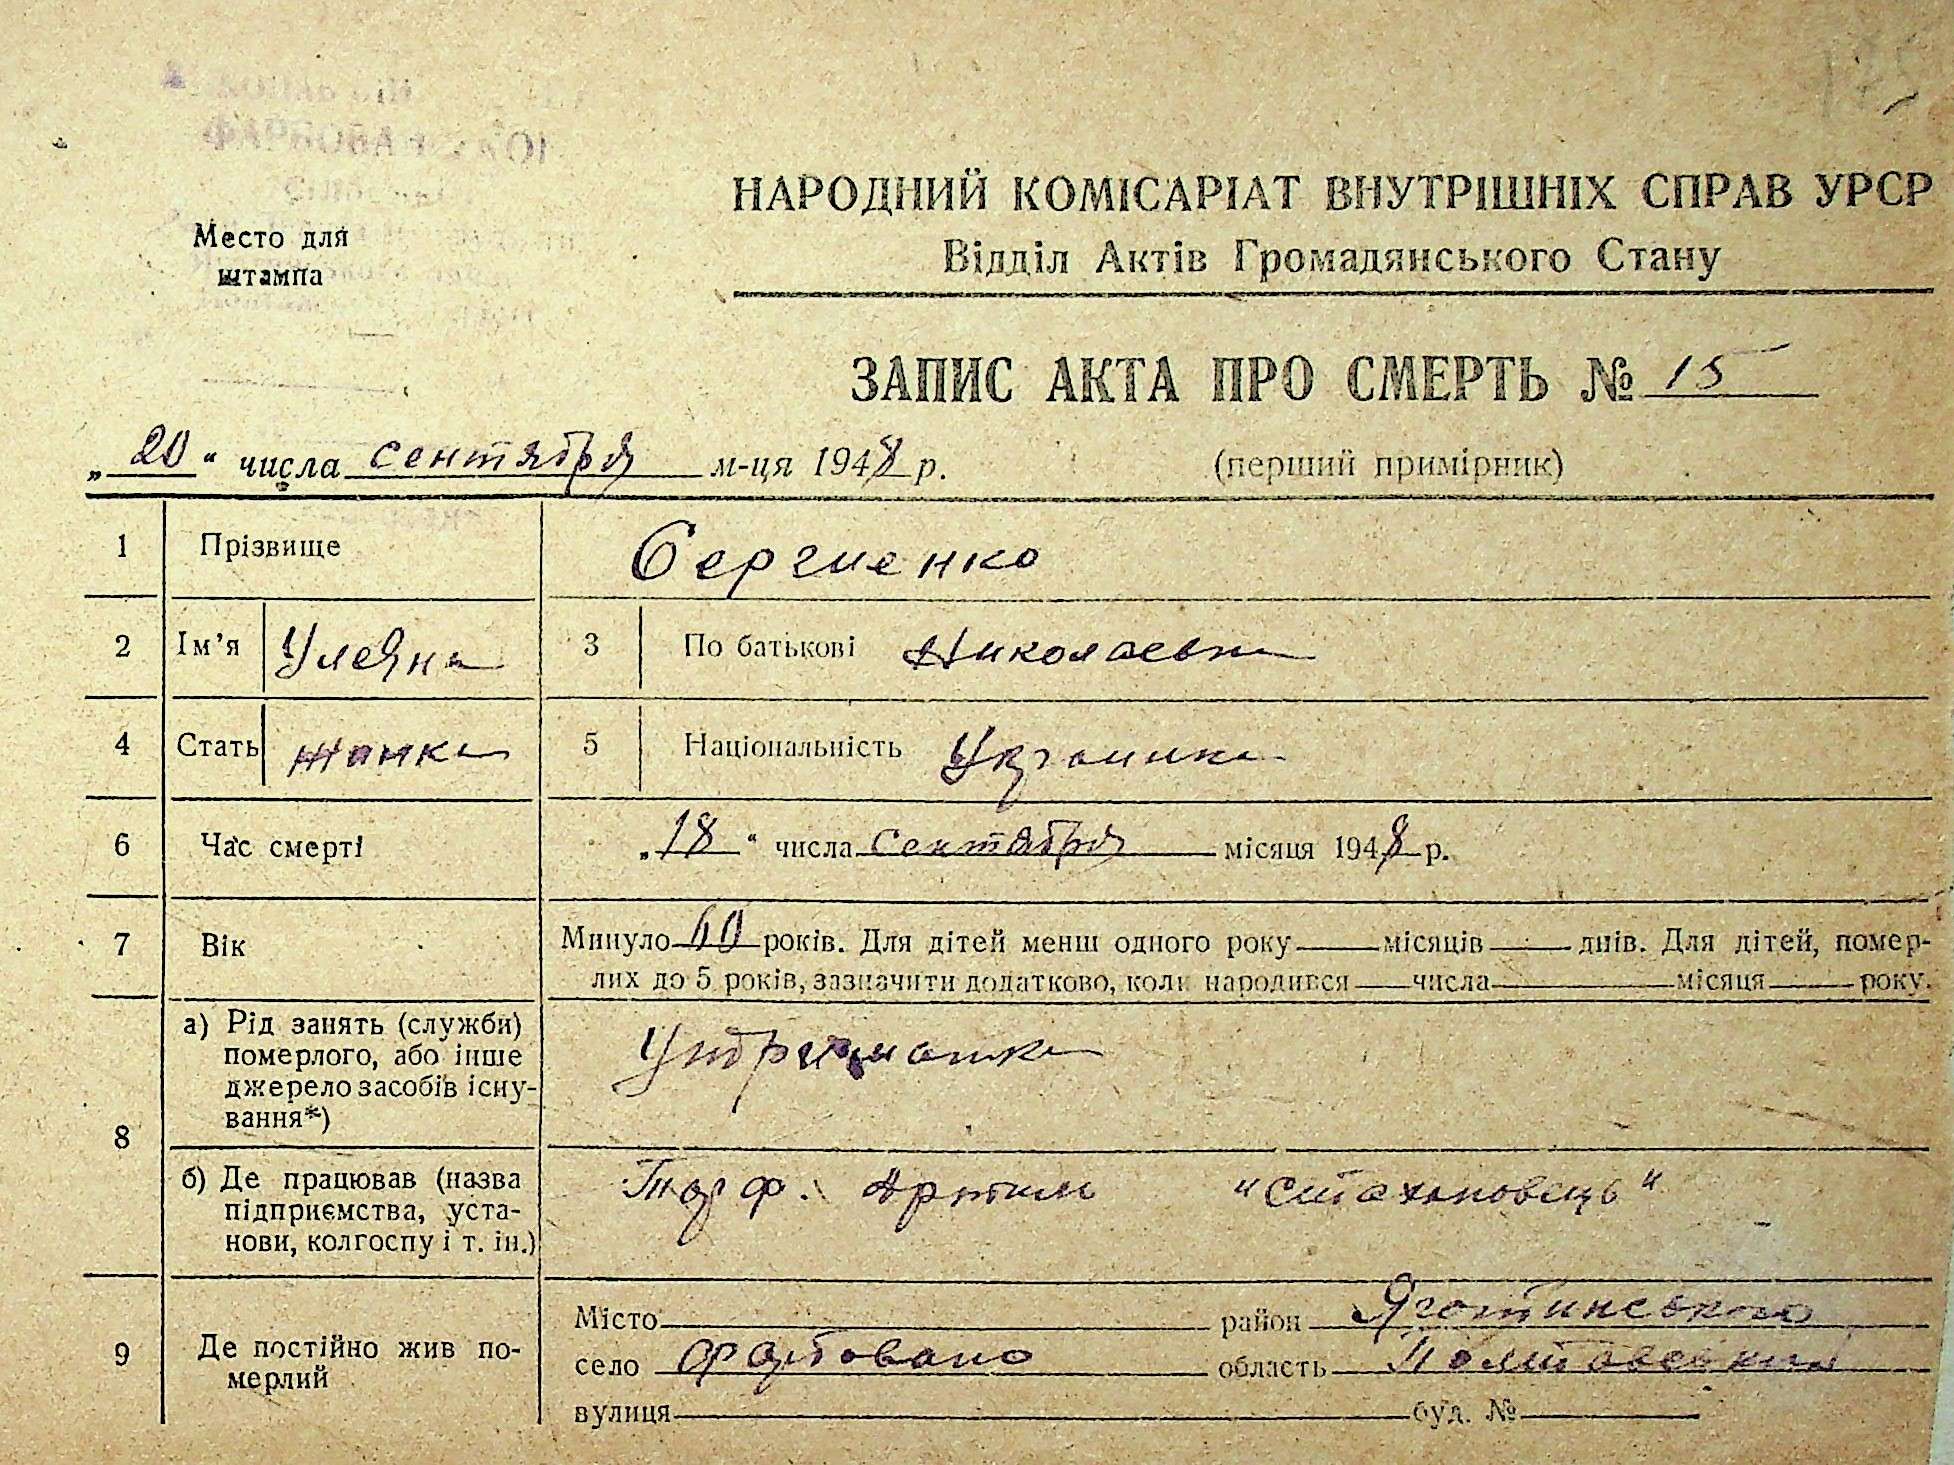 Место для
штампа
НАРОДНИЙ КОМІСАРІАТ ВНУТРІШНІХ СПРАВ УРСР
Відділ Актів Громадянського Стану
ЗАПИС АКТА ПРО СМЕРТЬ № 15
„20“ числа сентября м-ця 1948 р. (перший примірник)
1 Прізвище Сергиенко
2 Ім’я Уляна 3 По батькові Николаевна
4 Стать жінка 5 Національність Українка
6 Час смерті „18“ числа сентября місяця 1948 р.
7 Вік Минуло 60 років. Для дітей менш одного року — місяців — днів. Для дітей, помер-
лих до 5 років, зазначити додатково, коли народився — числа — місяця — року.
8 а) Рід занять (служби)
померлого, або інше
джерело засобів існу-
вання*)
б) Де працював (назва Артиль "Стахановець"
підприємства, уста-
нови, колгоспу і т. ін.)
9 Де постійно жив по-
мерлий
Місто район Яготинського
село область Полтавський
вулиця буд. №